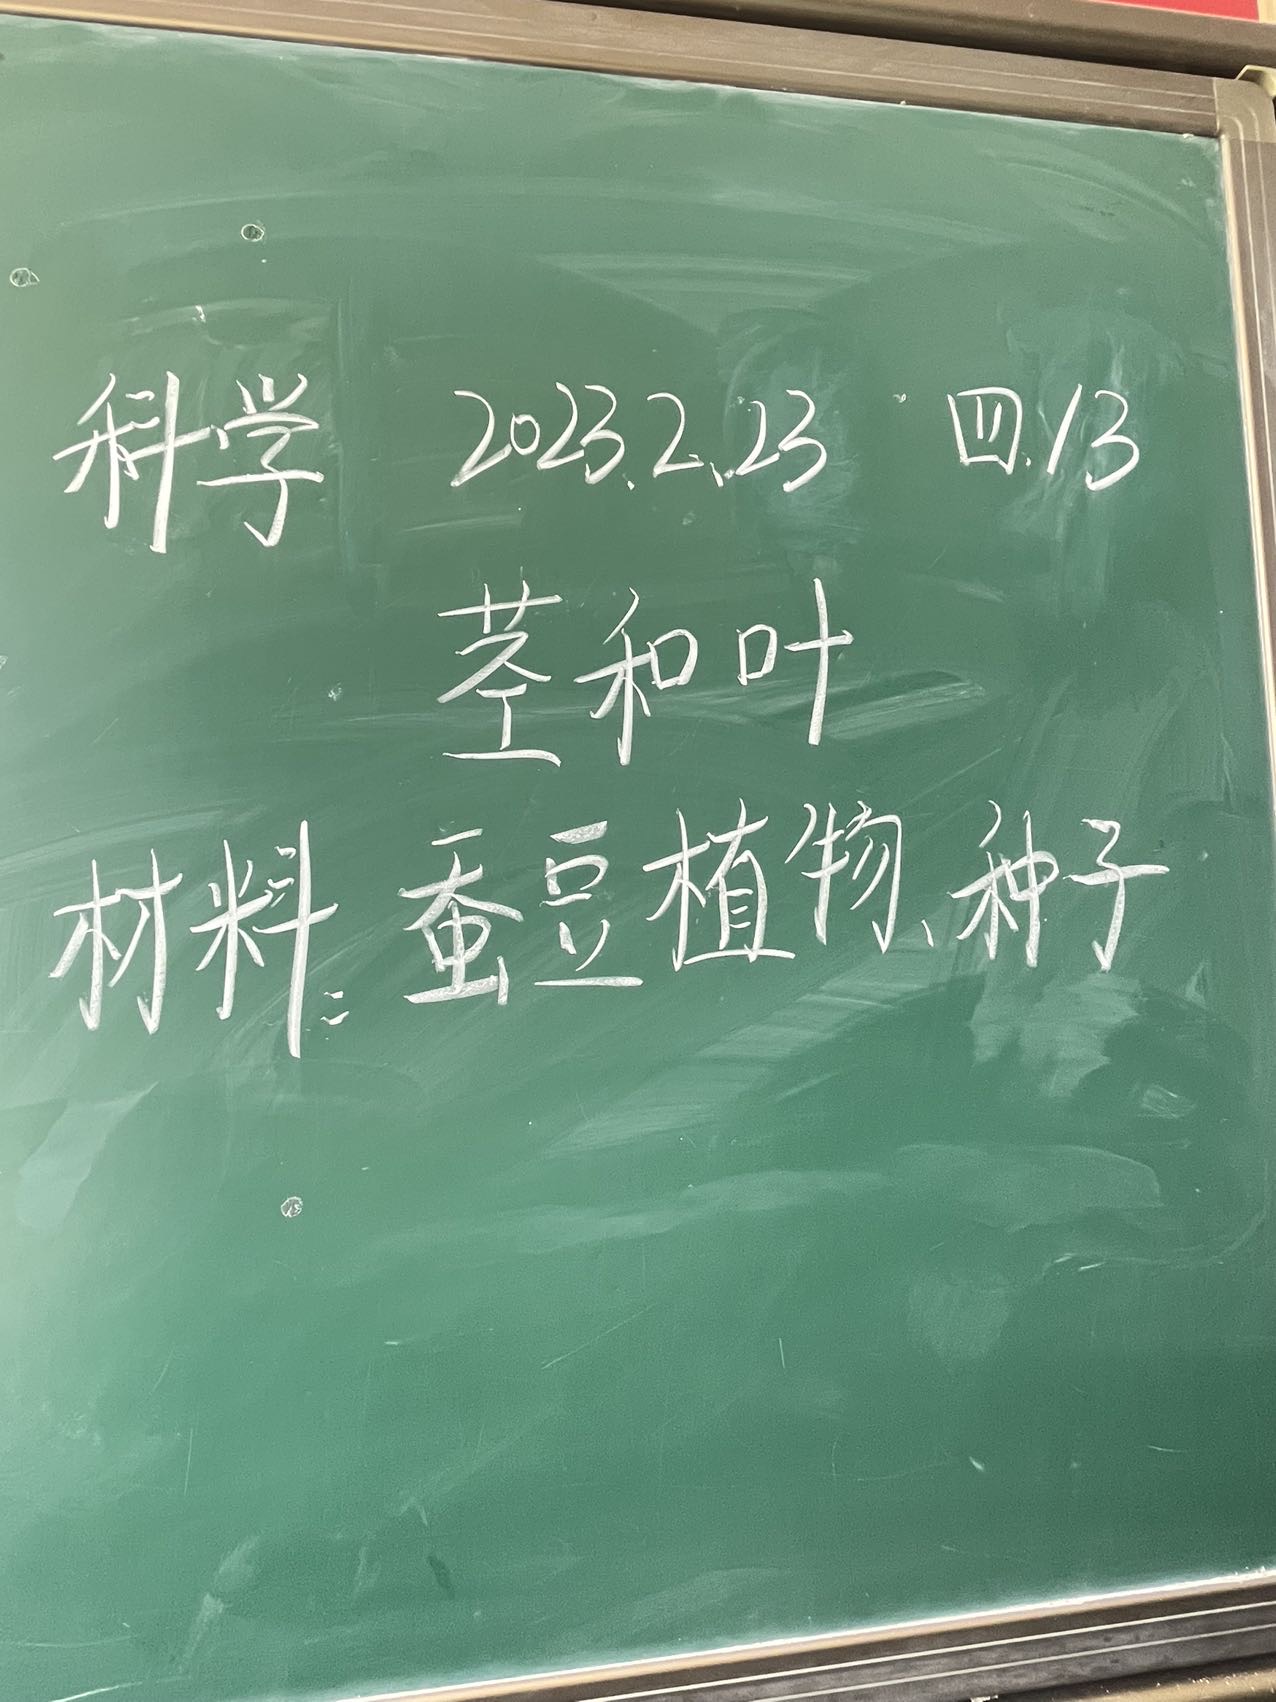 科学 2023.2.23 四.13
茎和叶
材料:蚕豆植物、种子